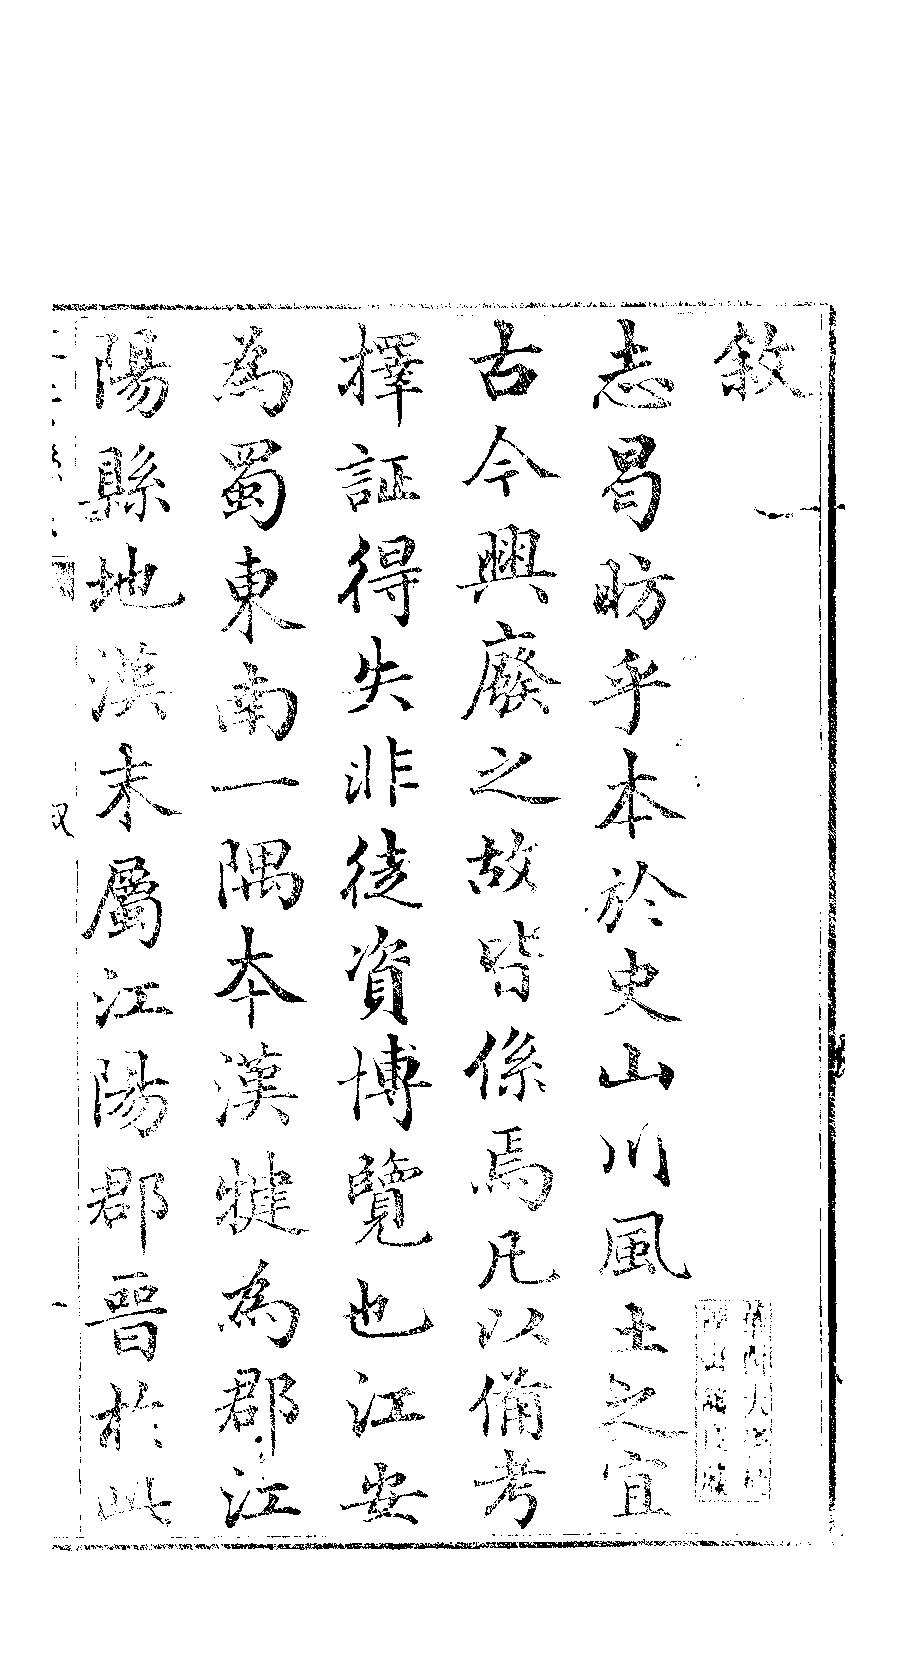 敘
志曷昉乎本於史山川風土之宜
古今興廢之故皆係焉凡以備考
擇証得失非徒資博覽也江安
為蜀東南一隅本漢犍為郡江
陽縣地漢末屬江陽郡晉於此